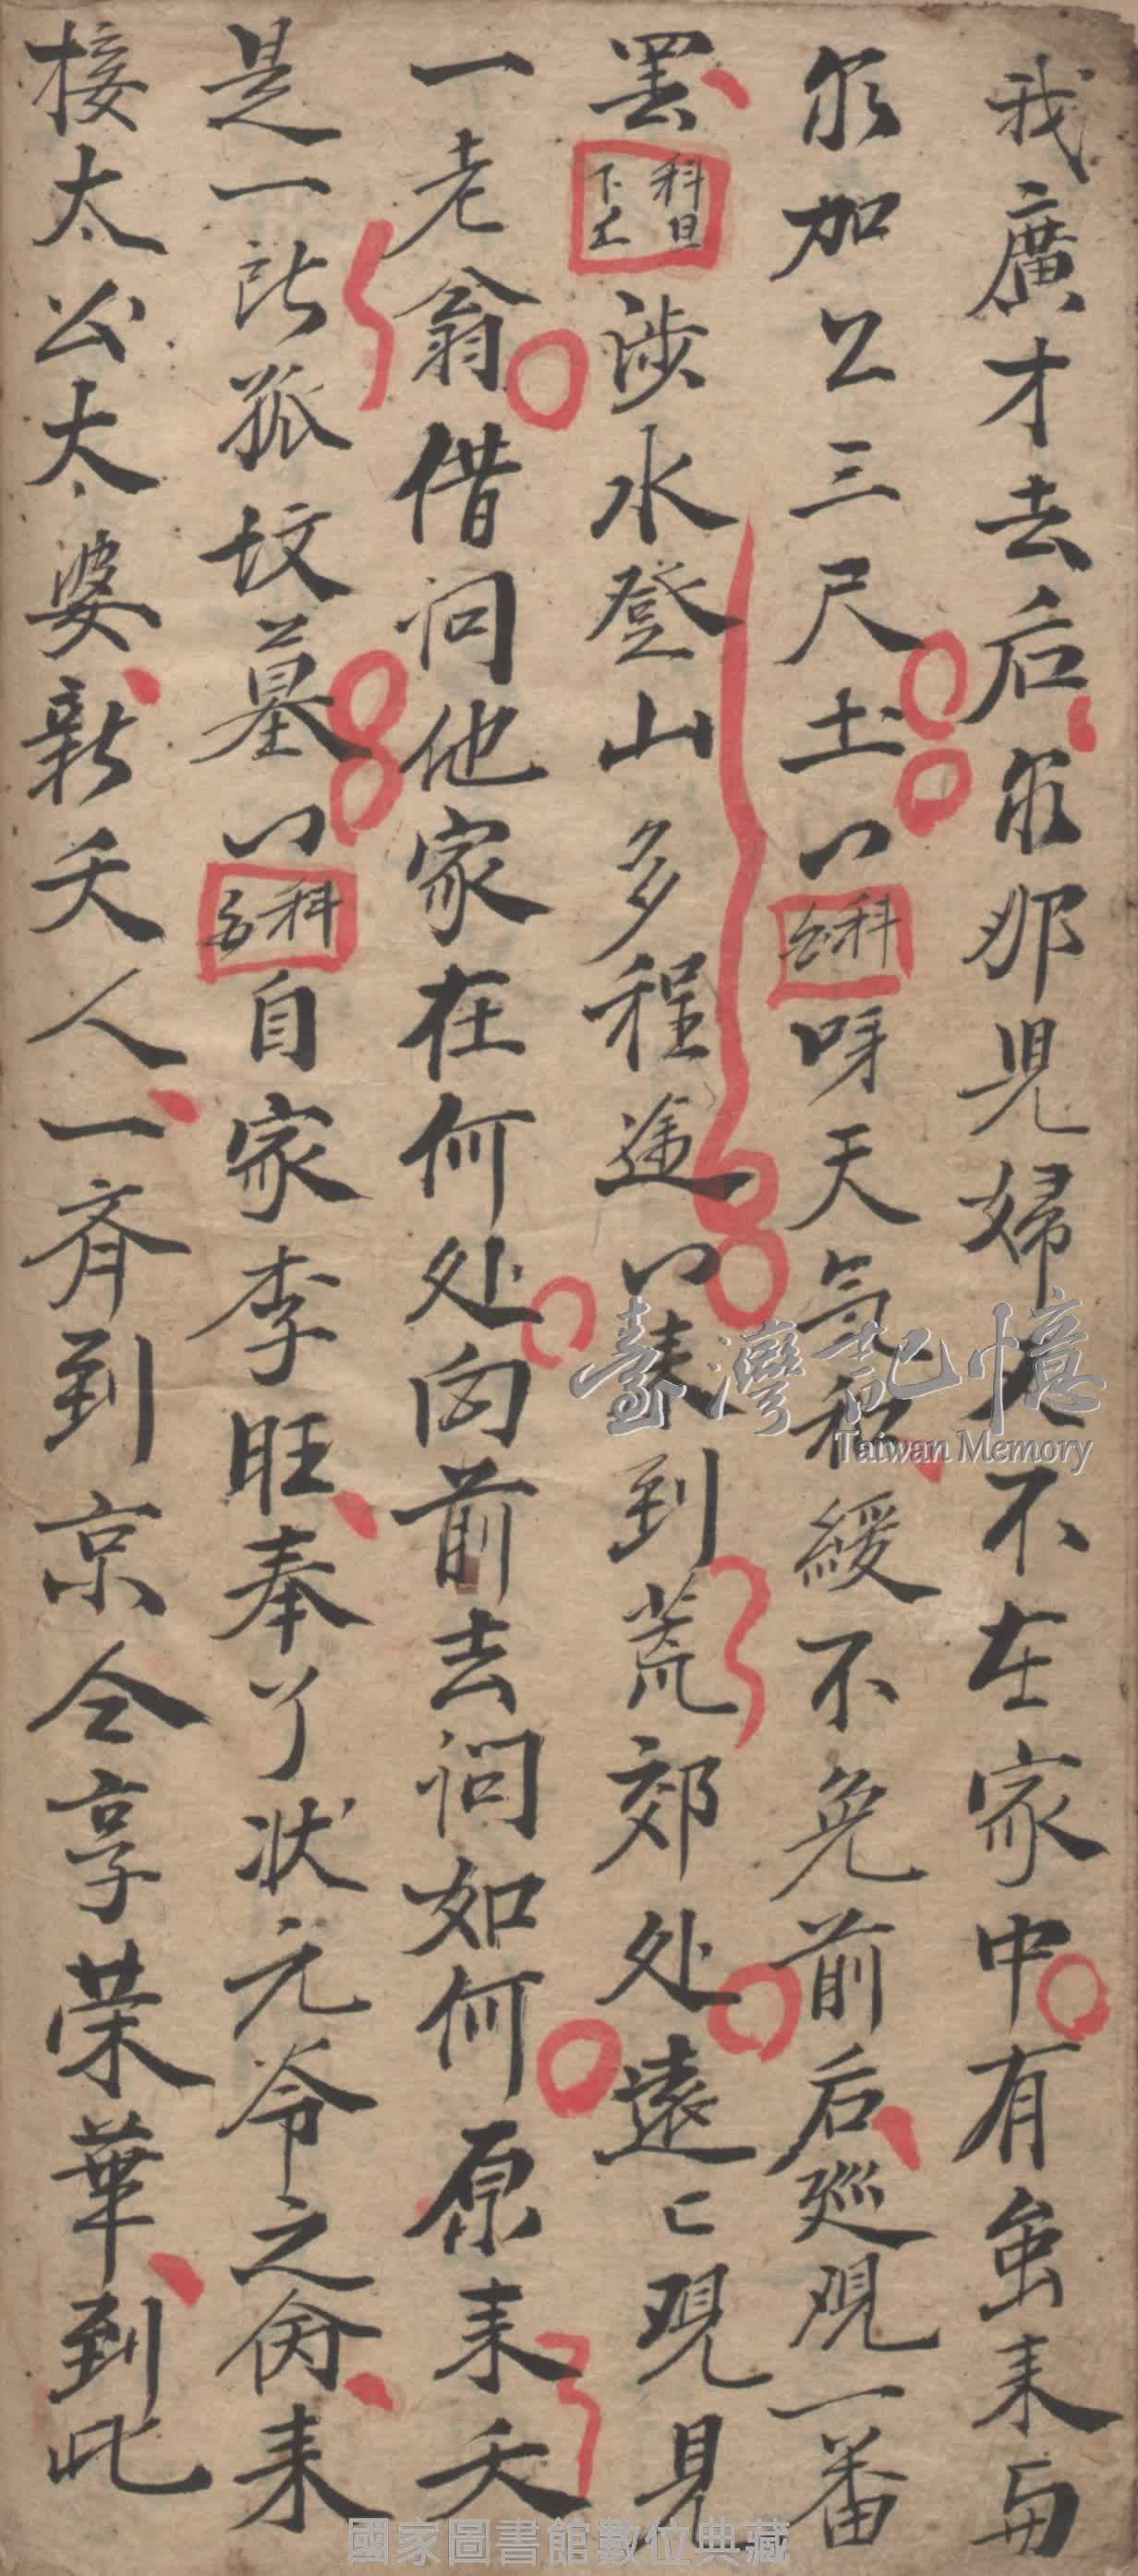 我廣才去后尔那児婦又不在家中有虽来与
尔加公三尺土〻科公呀天气和緩不免前后廵观一番
罢科旦下土涉水登山多程途〻来到荒郊处遠〻观見
一老翁借问他家在何处向前去问如何原来夭
是一所孤坟墓〻科自家李旺奉丫状元爷之命来
接太公太婆新夫人一齐到京仝享荣華到此
臺灣記憶
Taiwan Memory
國家圖書館數位典藏